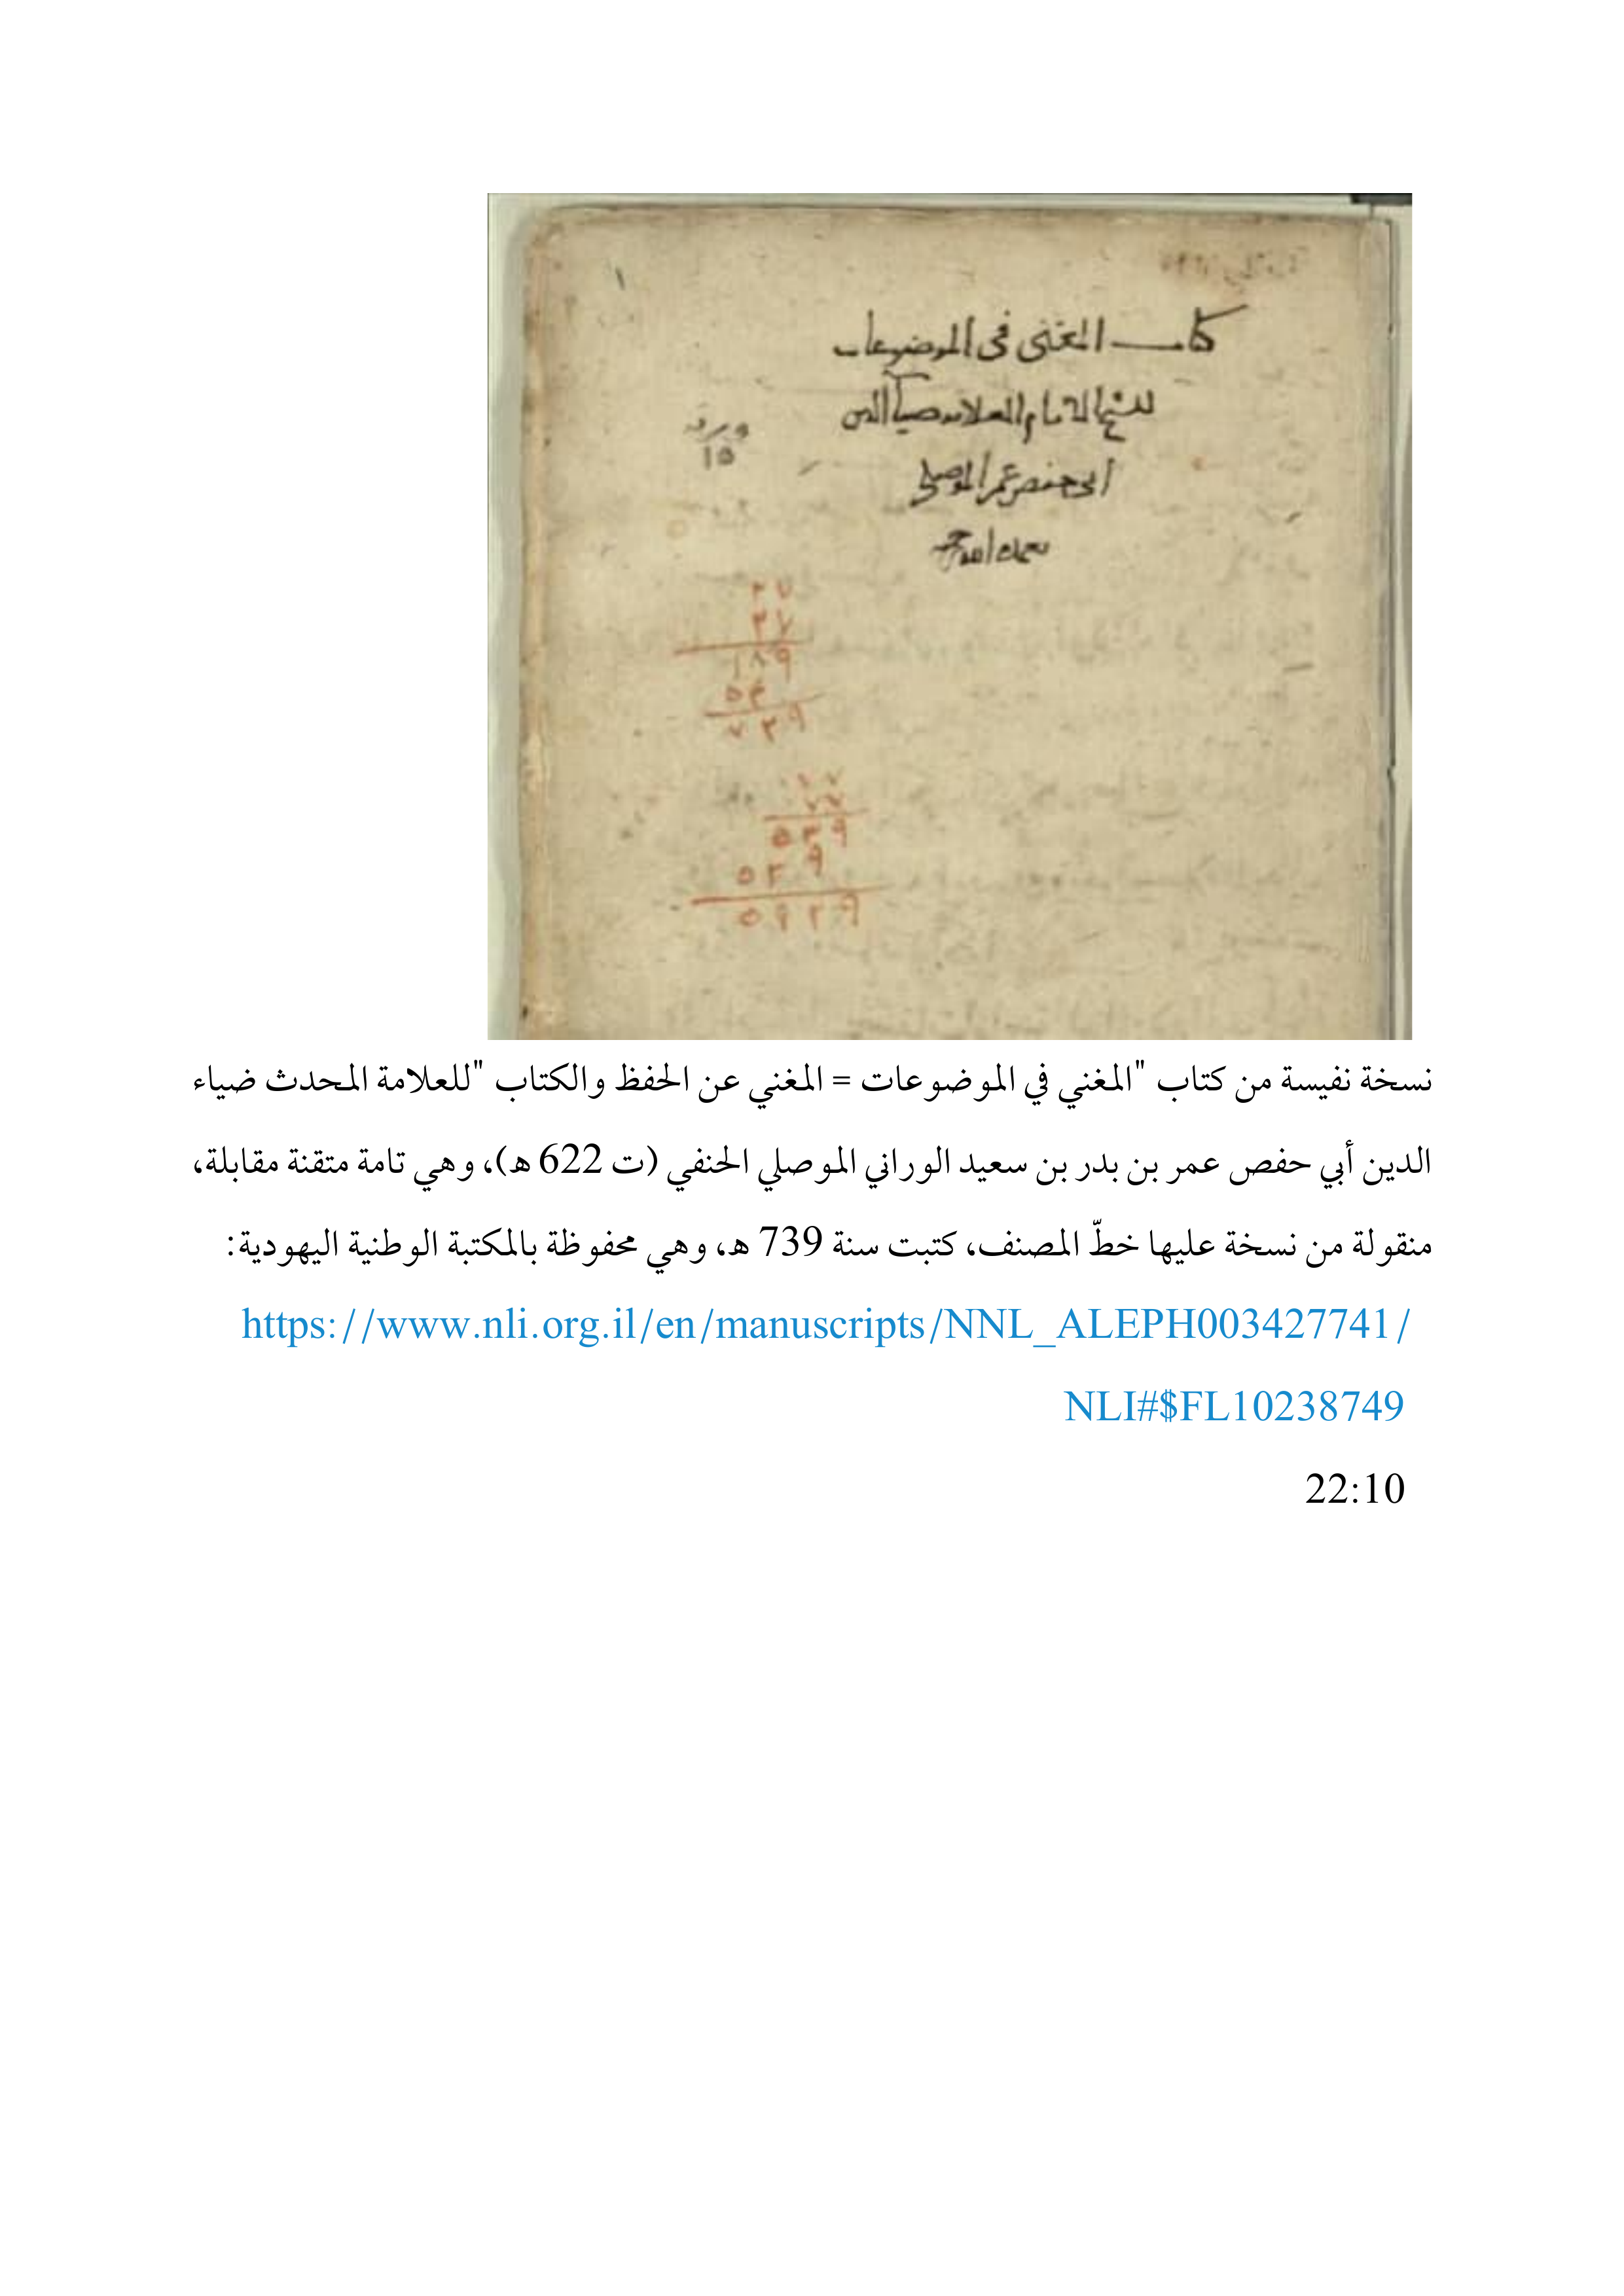 كتاب المغنى فى الموضوعات
للشيخ الامام العلامه ضيا الدين
ابى حفص عمر الموصلى
ورقه
١٥
٢٧
٢٧
١٨٩
٥٤
٧٢٩
٧٧
٧٧
٥٣٩
٥٣٩
٥٩٢٩
نسخة نفيسة من كتاب "المغني في الموضوعات = المغني عن الحفظ والكتاب "للعلامة المحدث ضياء
الدين أبي حفص عمر بن بدر بن سعيد الوراني الموصلي الحنفي (ت 622 ه)، وهي تامة متقنة مقابلة،
منقولة من نسخة عليها خطّ المصنف، كتبت سنة 739 ه، وهي محفوظة بالمكتبة الوطنية اليهودية:
https://www.nli.org.il/en/manuscripts/NNL_ALEPH003427741/
NLI#$FL10238749
22:10